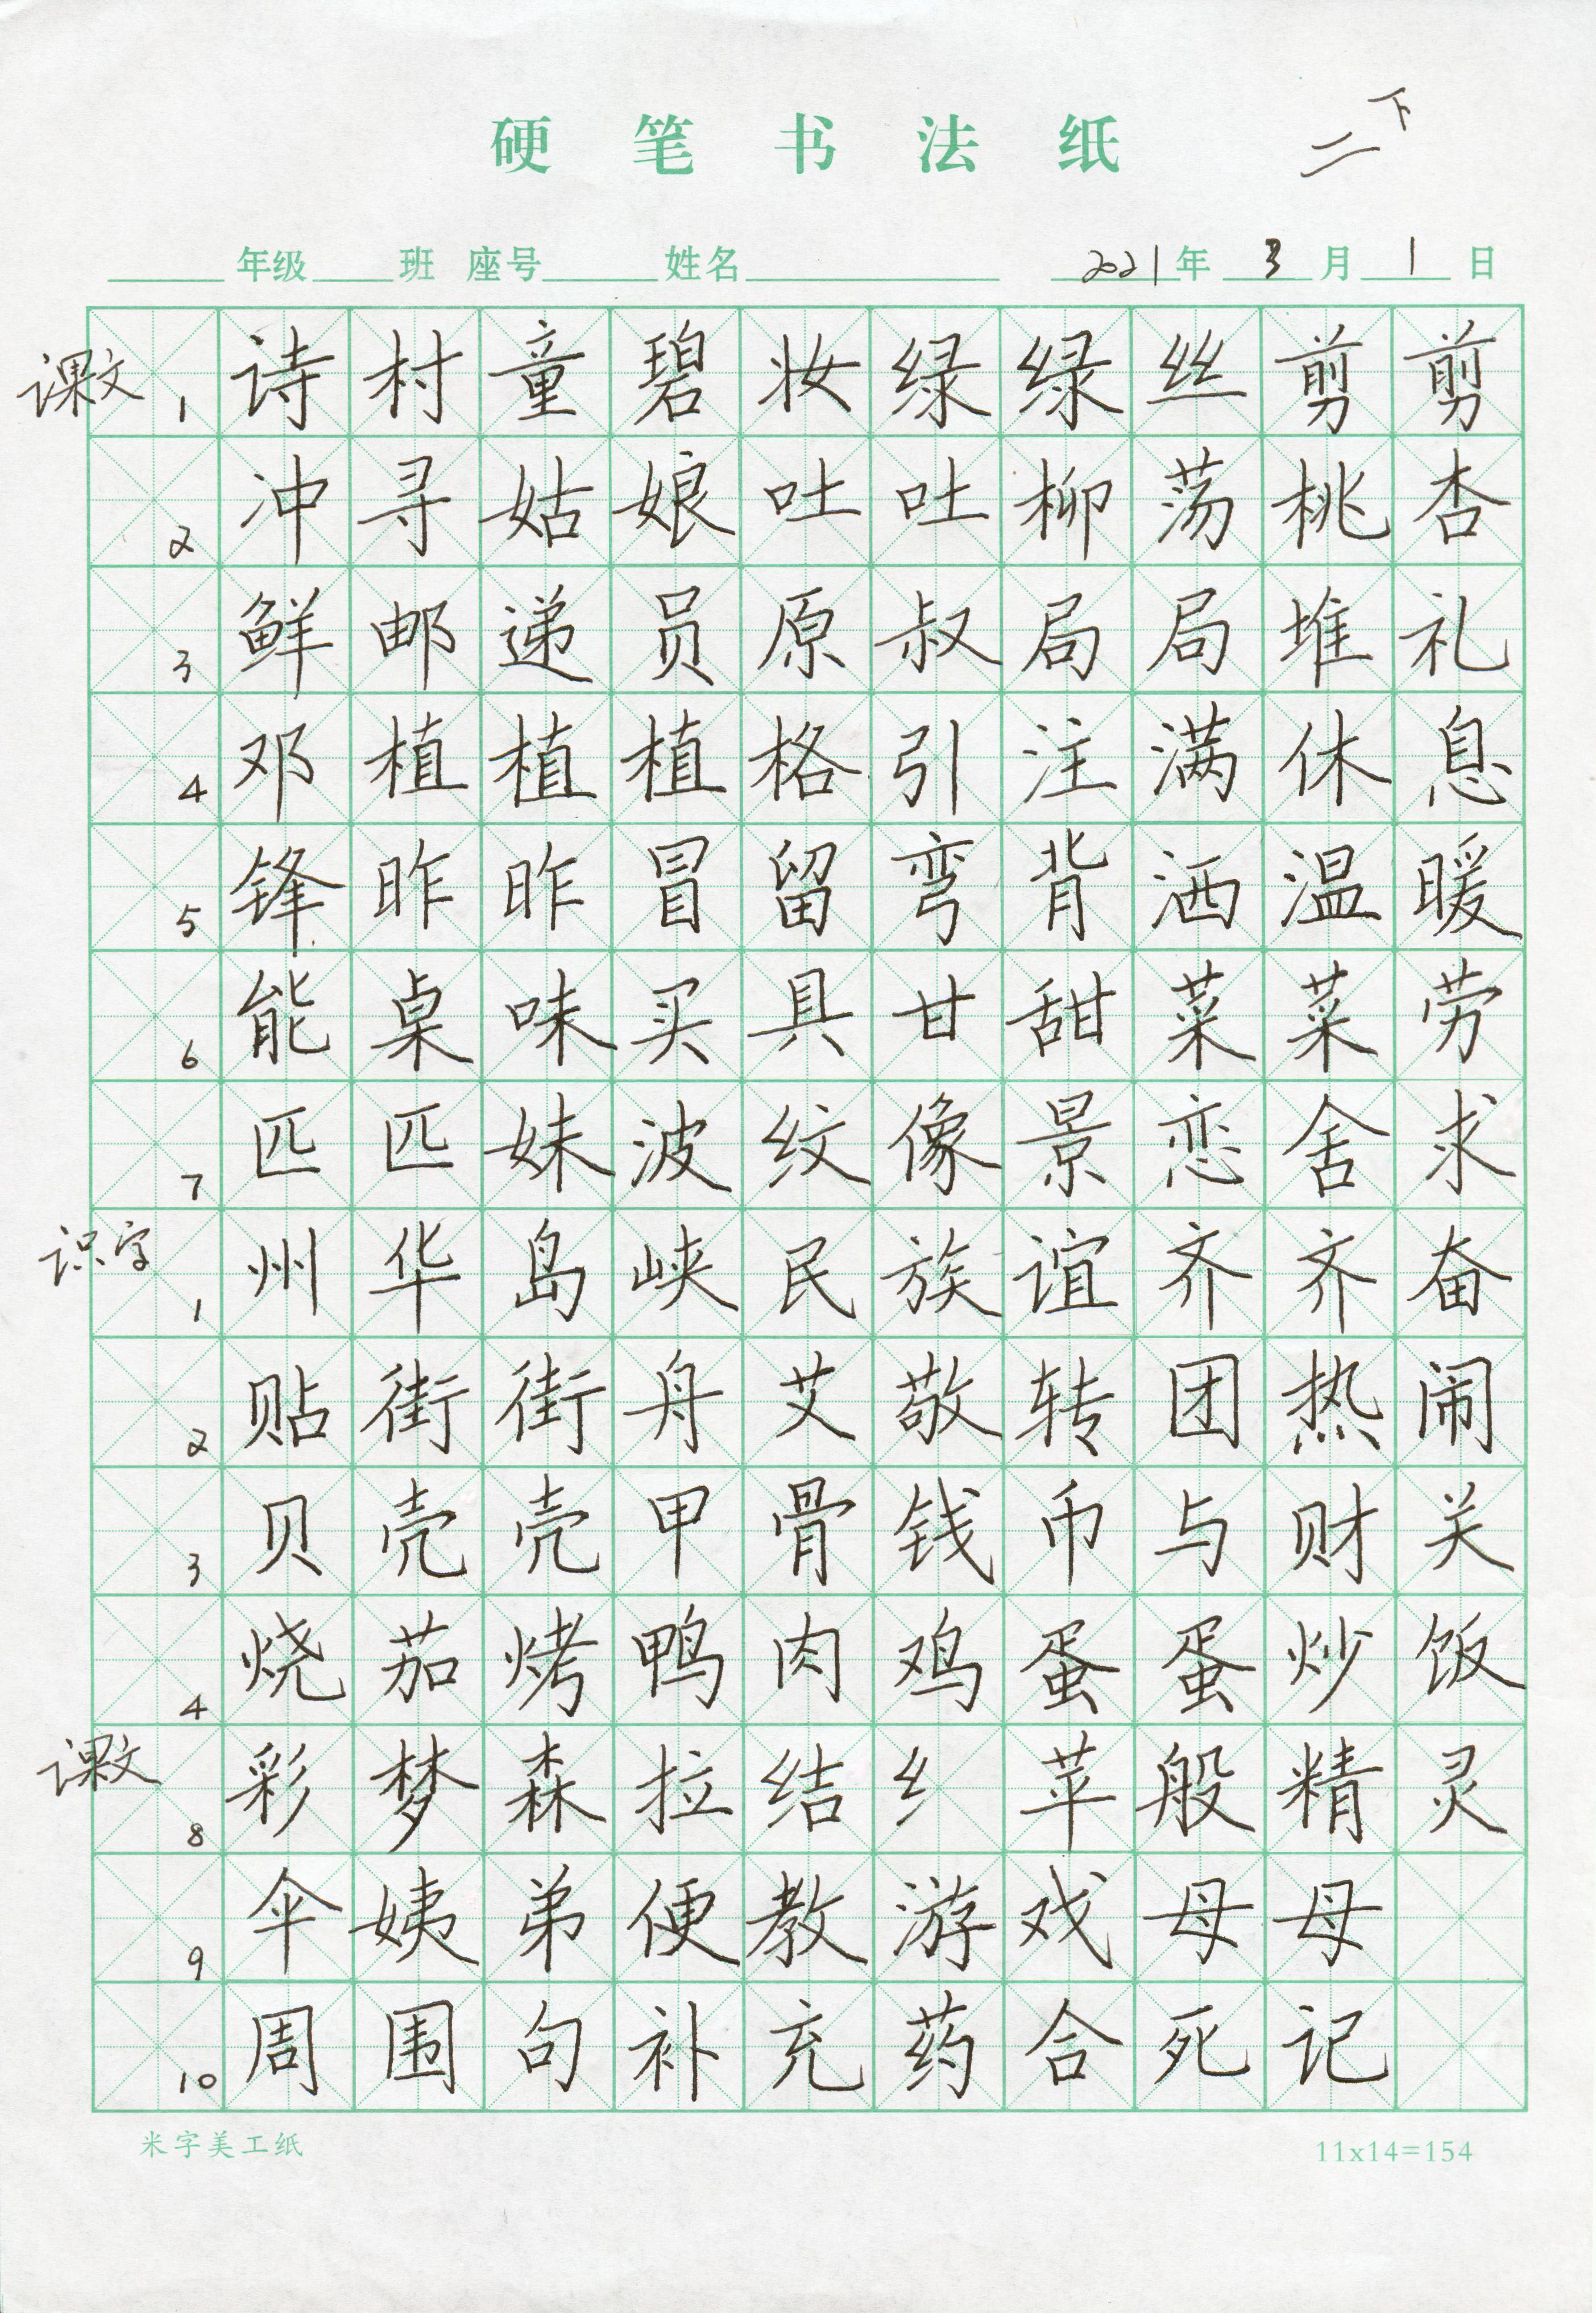 硬笔书法纸 二下
年级 班 座号 姓名 2021年3月1日
课文1 诗村童碧妆绿绿丝剪剪
2 冲寻姑娘吐吐柳荡桃杏
3 鲜邮递员原叔局局堆礼
4 邓植植植格引注满休息
5 锋昨昨冒留弯背洒温暖
6 能桌味买具甘甜菜菜劳
7 匹匹妹波纹像景恋舍求
识字1 州华岛峡民族谊齐齐奋
2 贴街街舟艾敬转团热闹
3 贝壳壳甲骨钱币与财关
4 烧茄烤鸭肉鸡蛋蛋炒饭
课文8 彩梦森拉结纟苹般精灵
9 伞姨弟便教游戏母母
10 周围句补充药合死记
米字美工纸 11x14=154